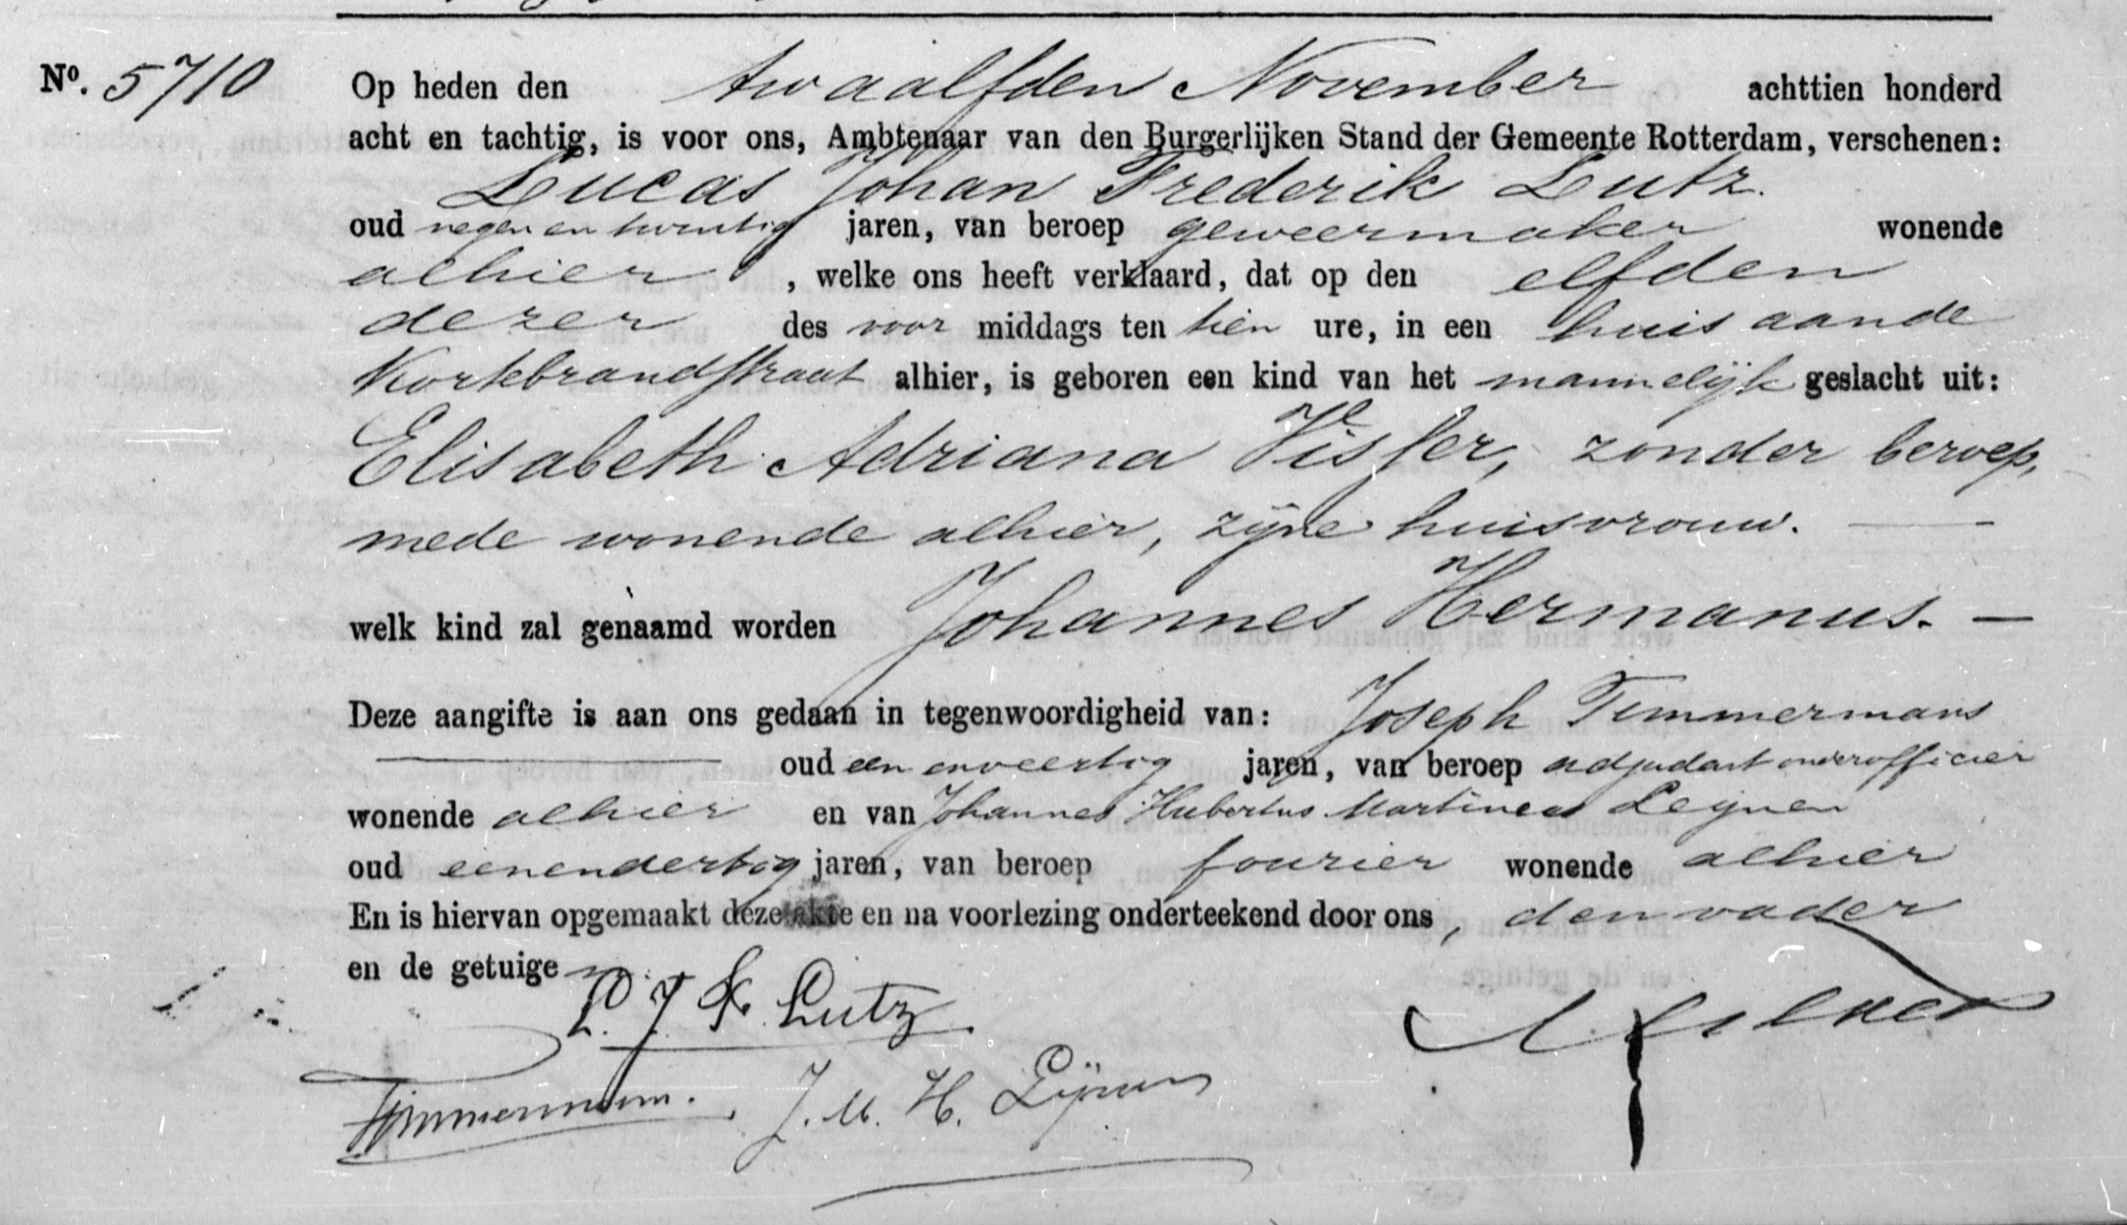 No. 5710
Op heden den twaalfden November achttien honderd
acht en tachtig, is voor ons, Ambtenaar van den Burgerlijken Stand der Gemeente Rotterdam, verschenen:
Lucas Johan Frederik Lutz.
oud negen en twintig jaren, van beroep geweermaker wonende
alhier, welke ons heeft verklaard, dat op den elfden
dezer des voor middags ten tien ure, in een huis aan de
Kortebrandstraat alhier, is geboren een kind van het mannelijk geslacht uit:
Elisabeth Adriana Visser, zonder beroep,
mede wonende alhier, zijne huisvrouw.
welk kind zal genaamd worden Johannes Hermanus. —
Deze aangifte is aan ons gedaan in tegenwoordigheid van: Joseph Timmermans
oud een en veertig jaren, van beroep adjudant onderofficier
wonende alhier en van Johannes Hubertus Martinus Leijnen
oud eenendertig jaren, van beroep fourier wonende alhier
En is hiervan opgemaakt deze akte en na voorlezing onderteekend door ons, den vader
en de getuigen.
L. J. F. Lutz
Timmermans. J. M. H. Leijnen